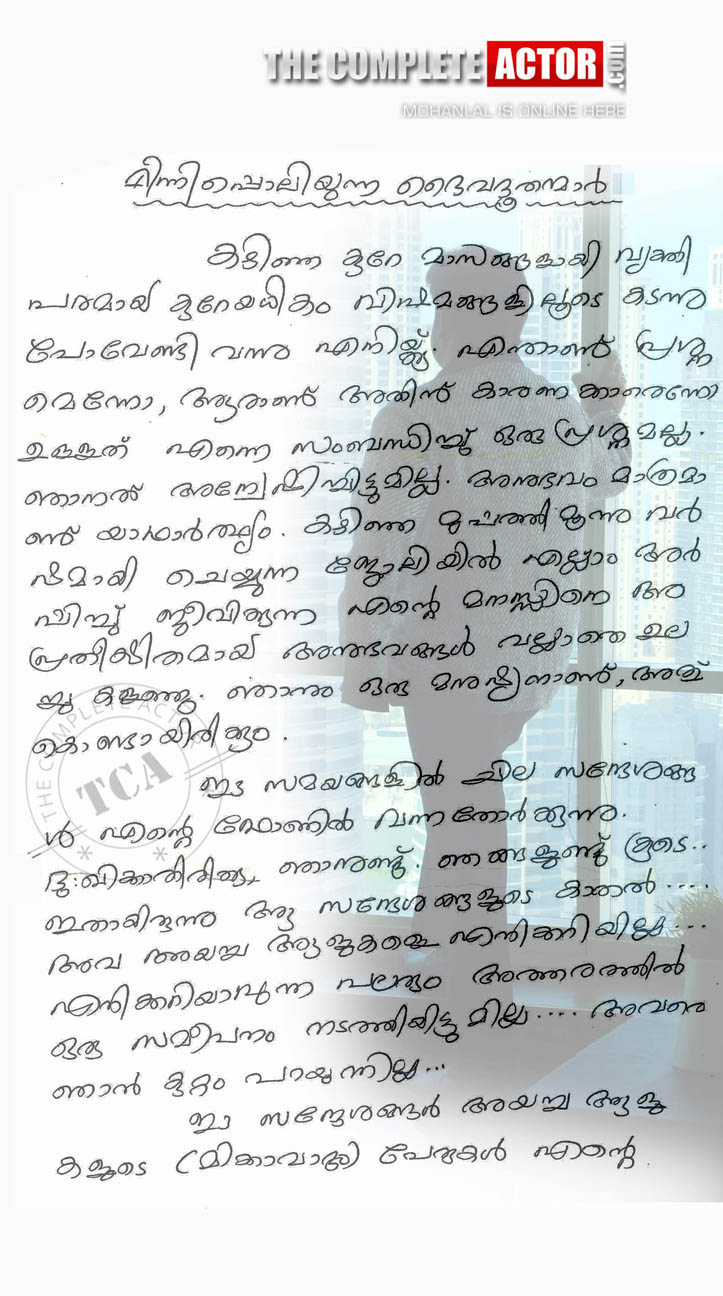 THE COMPLETE ACTOR.com
MOHANLAL IS ONLINE HERE
മിന്നിപ്പൊലിയുന്ന ദൈവദൂതന്മാർ
കഴിഞ്ഞ കുറേ മാസങ്ങളായി വ്യക്തി
പരമായ് കുറേയധികം വിഷമങ്ങളിലൂടെ കടന്നു
പോവേണ്ടി വന്നു എനിയ്ക്ക്. എന്താണ് പ്രശ്ന
മെന്നോ, ആരാണ് അതിന് കാരണക്കാരെന്നോ
ഉള്ളത് എന്നെ സംബന്ധിച്ച് ഒരു പ്രശ്നമല്ല.
ഞാനത് അന്വേഷിച്ചിട്ടുമില്ല. അനുഭവം മാത്രമാ
ണ് യാഥാർത്ഥ്യം. കഴിഞ്ഞ മുപ്പത്തിമൂന്നു വർ
ഷമായി ചെയ്യുന്ന ജോലിയിൽ എല്ലാം അർ
പ്പിച്ച് ജീവിക്കുന്ന എന്റെ മനസ്സിനെ അ
പ്രതീക്ഷിതമായ് അനുഭവങ്ങൾ വല്ലാതെ ഉല
ച്ചു കളഞ്ഞു. ഞാനും ഒരു മനുഷ്യനാണ്, അത്
കൊണ്ടായിരിക്കും.
ഈ സമയങ്ങളിൽ ചില സന്ദേശങ്ങ
ൾ എന്റെ ഫോണിൽ വന്നതോർക്കുന്നു.
ദു:ഖിക്കാതിരിക്കൂ, ഞാനുണ്ട്. ഞങ്ങളുണ്ട് കൂടെ..
ഇതായിരുന്നു ആ സന്ദേശങ്ങളുടെ കാതൽ....
അവ അയച്ച ആളുകളെ എനിക്കറിയില്ല...
എനിക്കറിയാവുന്ന പലരും അത്തരത്തിൽ
ഒരു സമീപനം നടത്തിയിട്ടുമില്ല.... അവരെ
ഞാൻ കുറ്റം പറയുന്നില്ല...
ഈ സന്ദേശങ്ങൾ അയച്ച ആളു
കളുടെ (മിക്കവാറും) പേരുകൾ എന്റെ
THE COMPLETE ACTOR
TCA